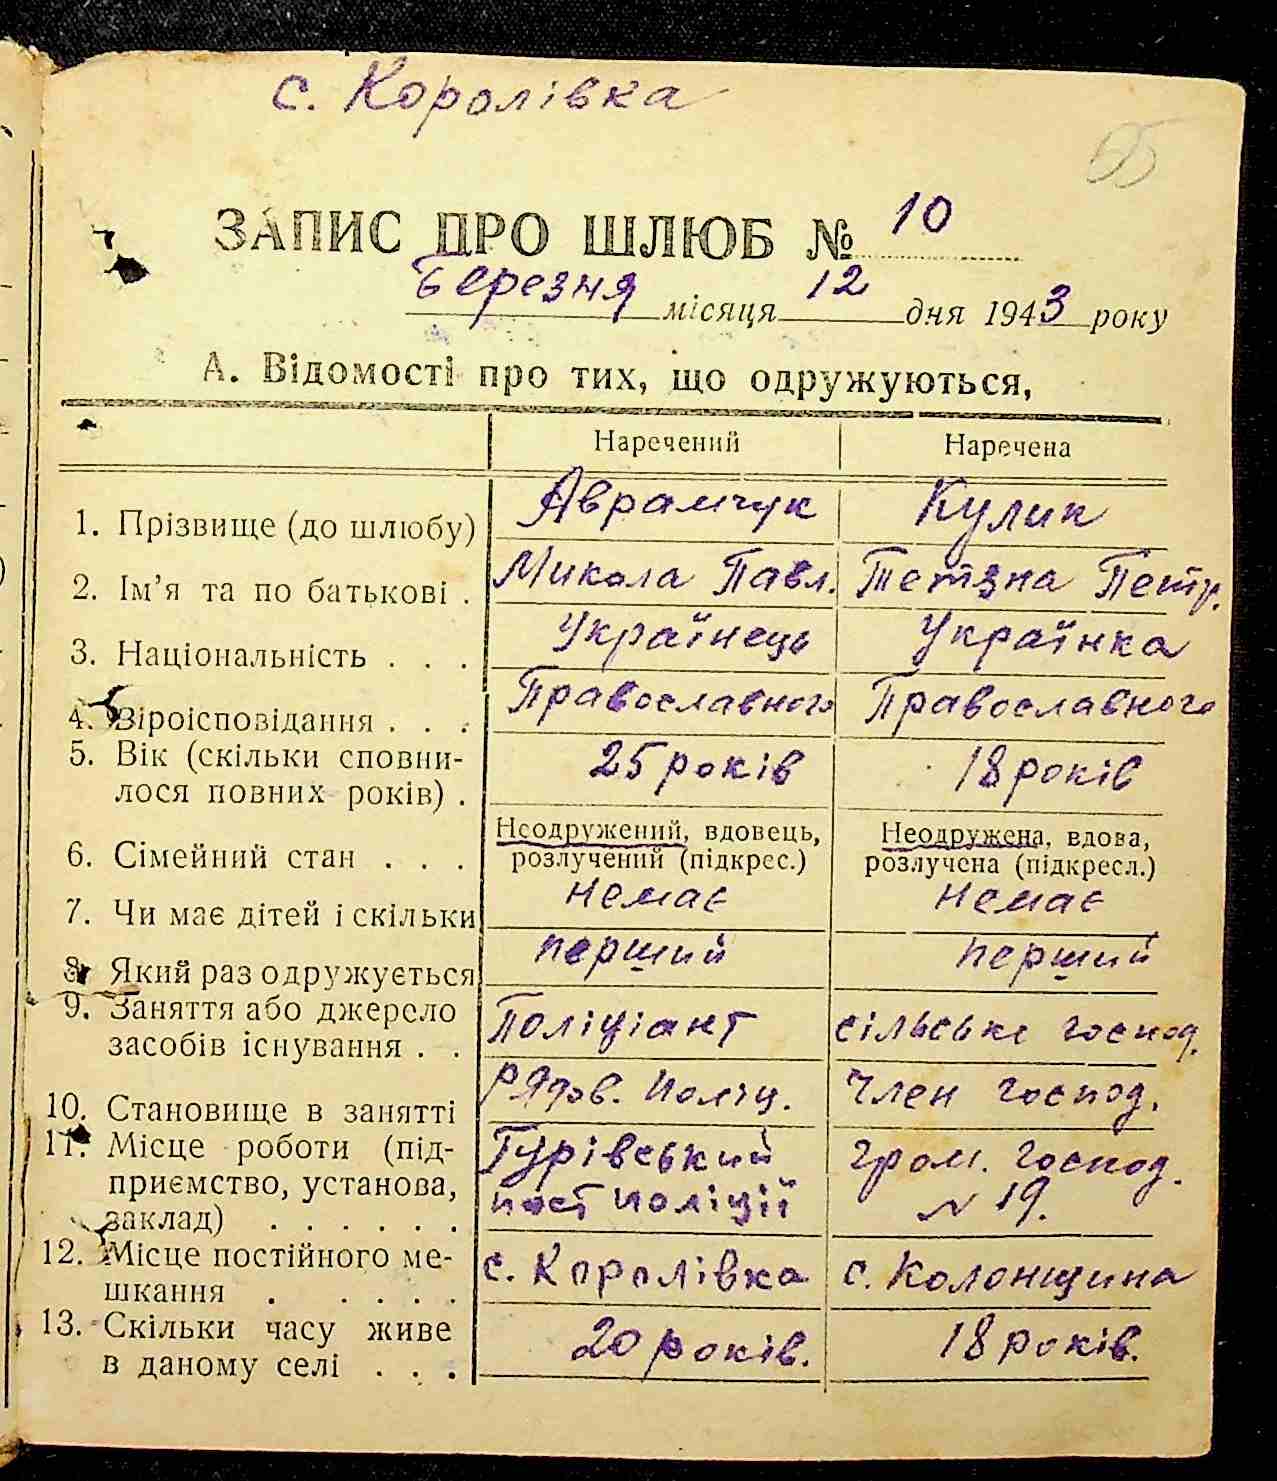 с. Королівка
55
ЗАПИС ПРО ШЛЮБ № 10
Березня місяця 12 дня 1943 року
А. Відомості про тих, що одружуються,
Наречений Наречена
1. Прізвище (до шлюбу) Аврамчук Кулик
2. Ім'я та по батькові . Микола Павл. Тетяна Петр.
3. Національність . . . Українець Українка
4. Віроісповідання . . . Православного Православного
5. Вік (скільки сповни-
лося повних років) . 25 років 18 років
6. Сімейний стан . . . Неодружений, вдовець, розлучений (підкрес.) Неодружена, вдова, розлучена (підкресл.)
7. Чи має дітей і скільки Немає Немає
8. Який раз одружується перший перший
9. Заняття або джерело
засобів існування . . Поліціант сільське господ.
10. Становище в занятті Рядов. поліц. Член господ.
11. Місце роботи (під-
приємство, установа,
заклад) . . . . . . Гурівський пост поліції гром. господ. N 19.
12. Місце постійного ме-
шкання . . . . . с. Королівка с. Колонщина
13. Скільки часу живе
в даному селі . . . 20 років. 18 років.